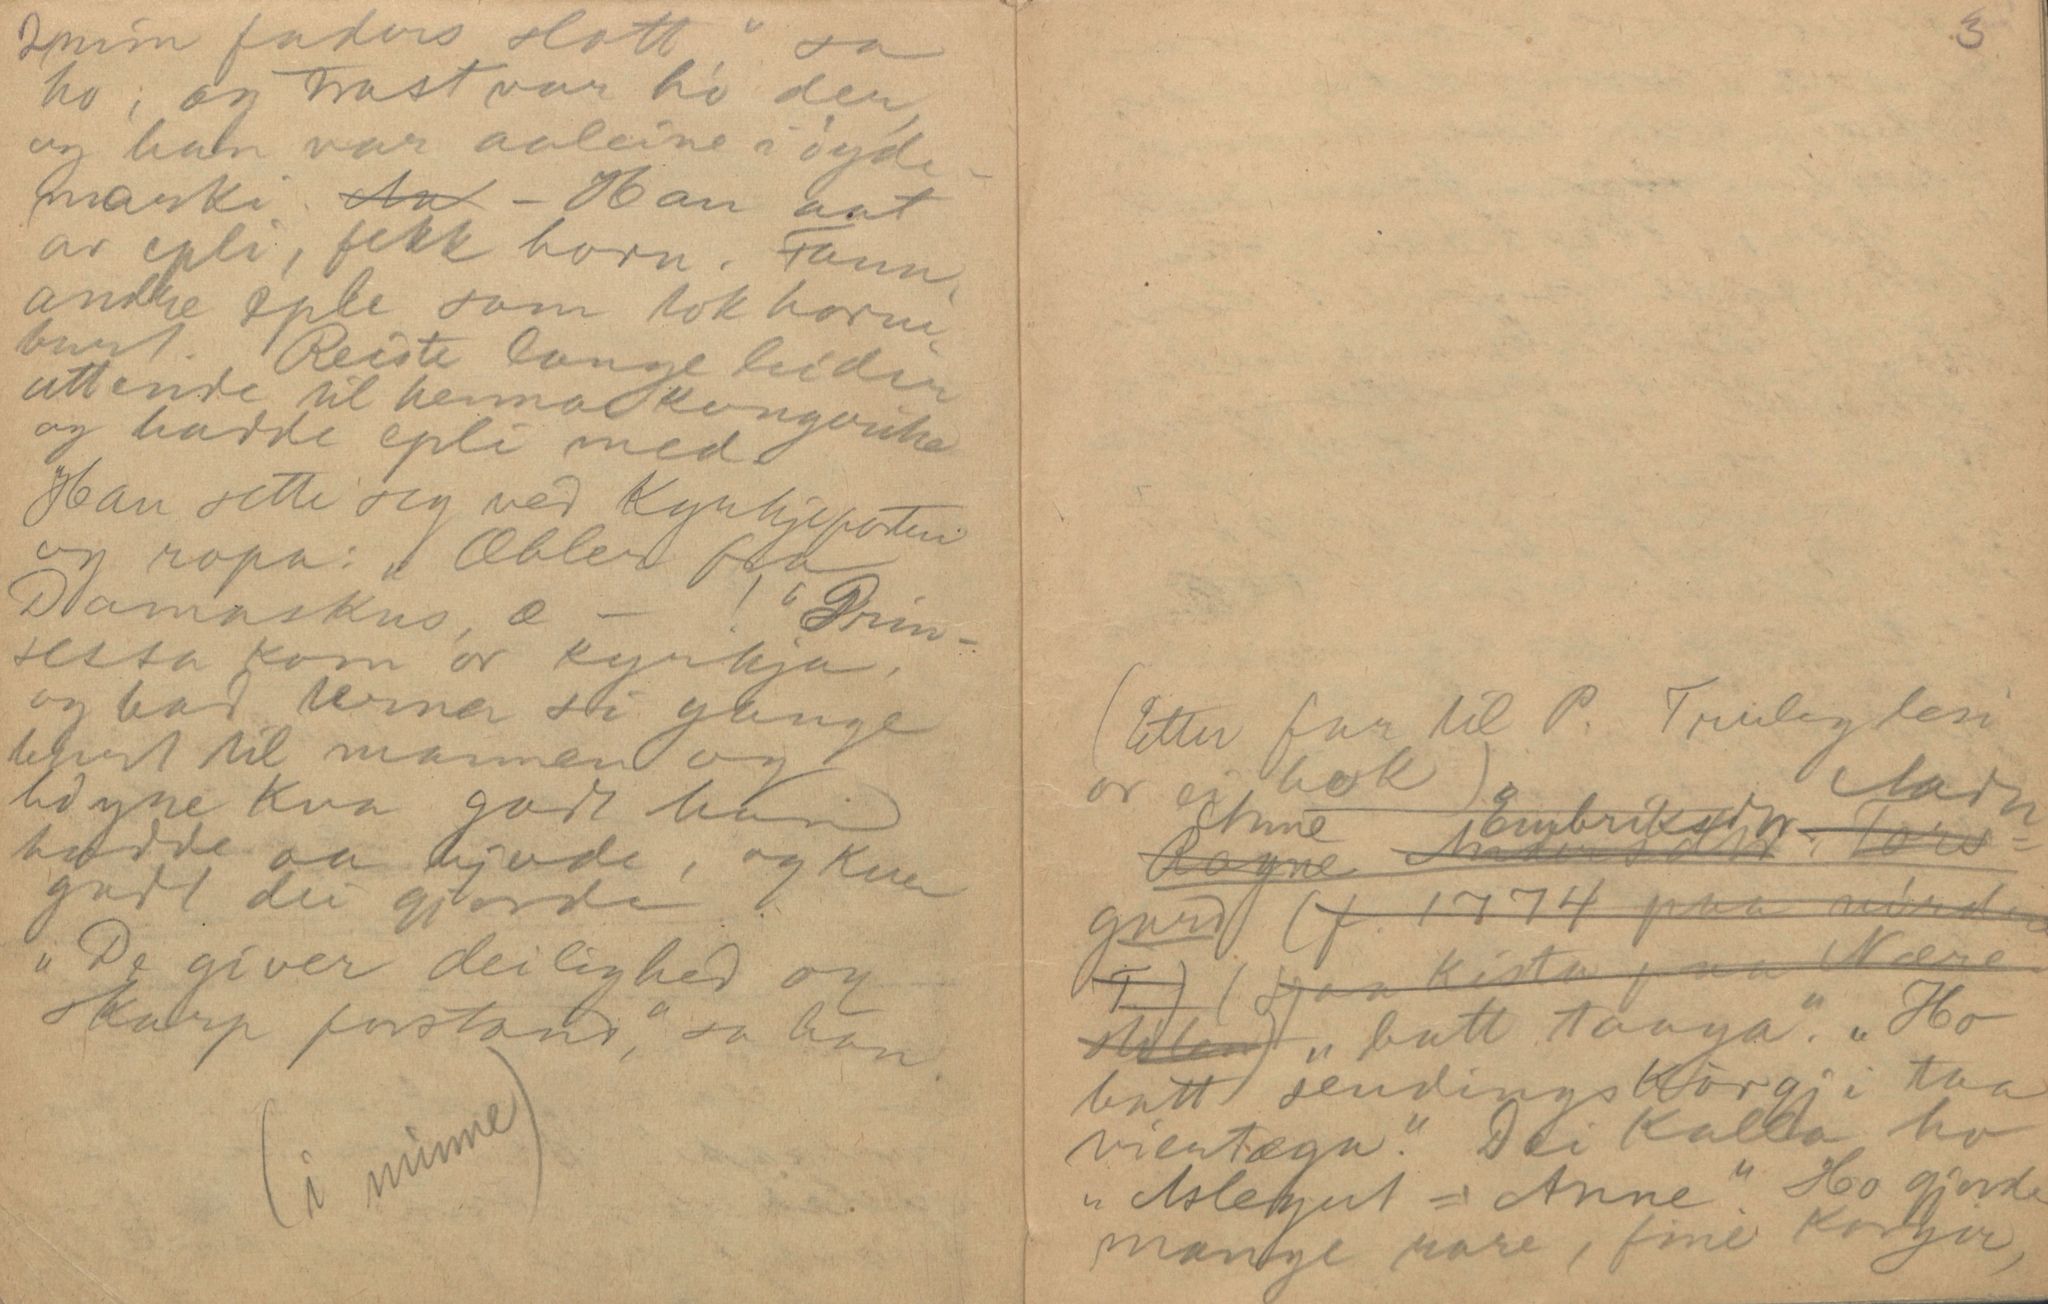 I min faders slott," sa
ho, og trast var ho der,
og han var aaleine i öyde-
marki. – Han aat
av epli, fekk horn. Fann
andre eple som tok horni
burt. Reiste lange leidir
attende til heimalkongerike
og hadde epli med.
Han sette seg ved Kyrkjeporten
og ropa: „Æbler fra
Damaskus, æ – !" Prin-
sessa kom or kyrkja,
og bad terna si gange
burt til mannen og
höyre kva godt han
hadde aa bjoda, og kva
godt dei gjorde.
„De giver deilighed og
skarp forstand," sa han.
(i minne)
3
(Etter far til P. Truleg lesi
or ei bok)
Aadn-
Anne Embriksdtr.
Rögne Andersdtr. Tors-
gard (f. 1774 paa nördre
T) (paa kista paa Næra-
stölen) „batt taaga". „Ho
batt sendingskörgji taa
viertæga". Dei kalla ho
„Aslegut = Anne". Ho gjorde
mange rare, fine korgjir,